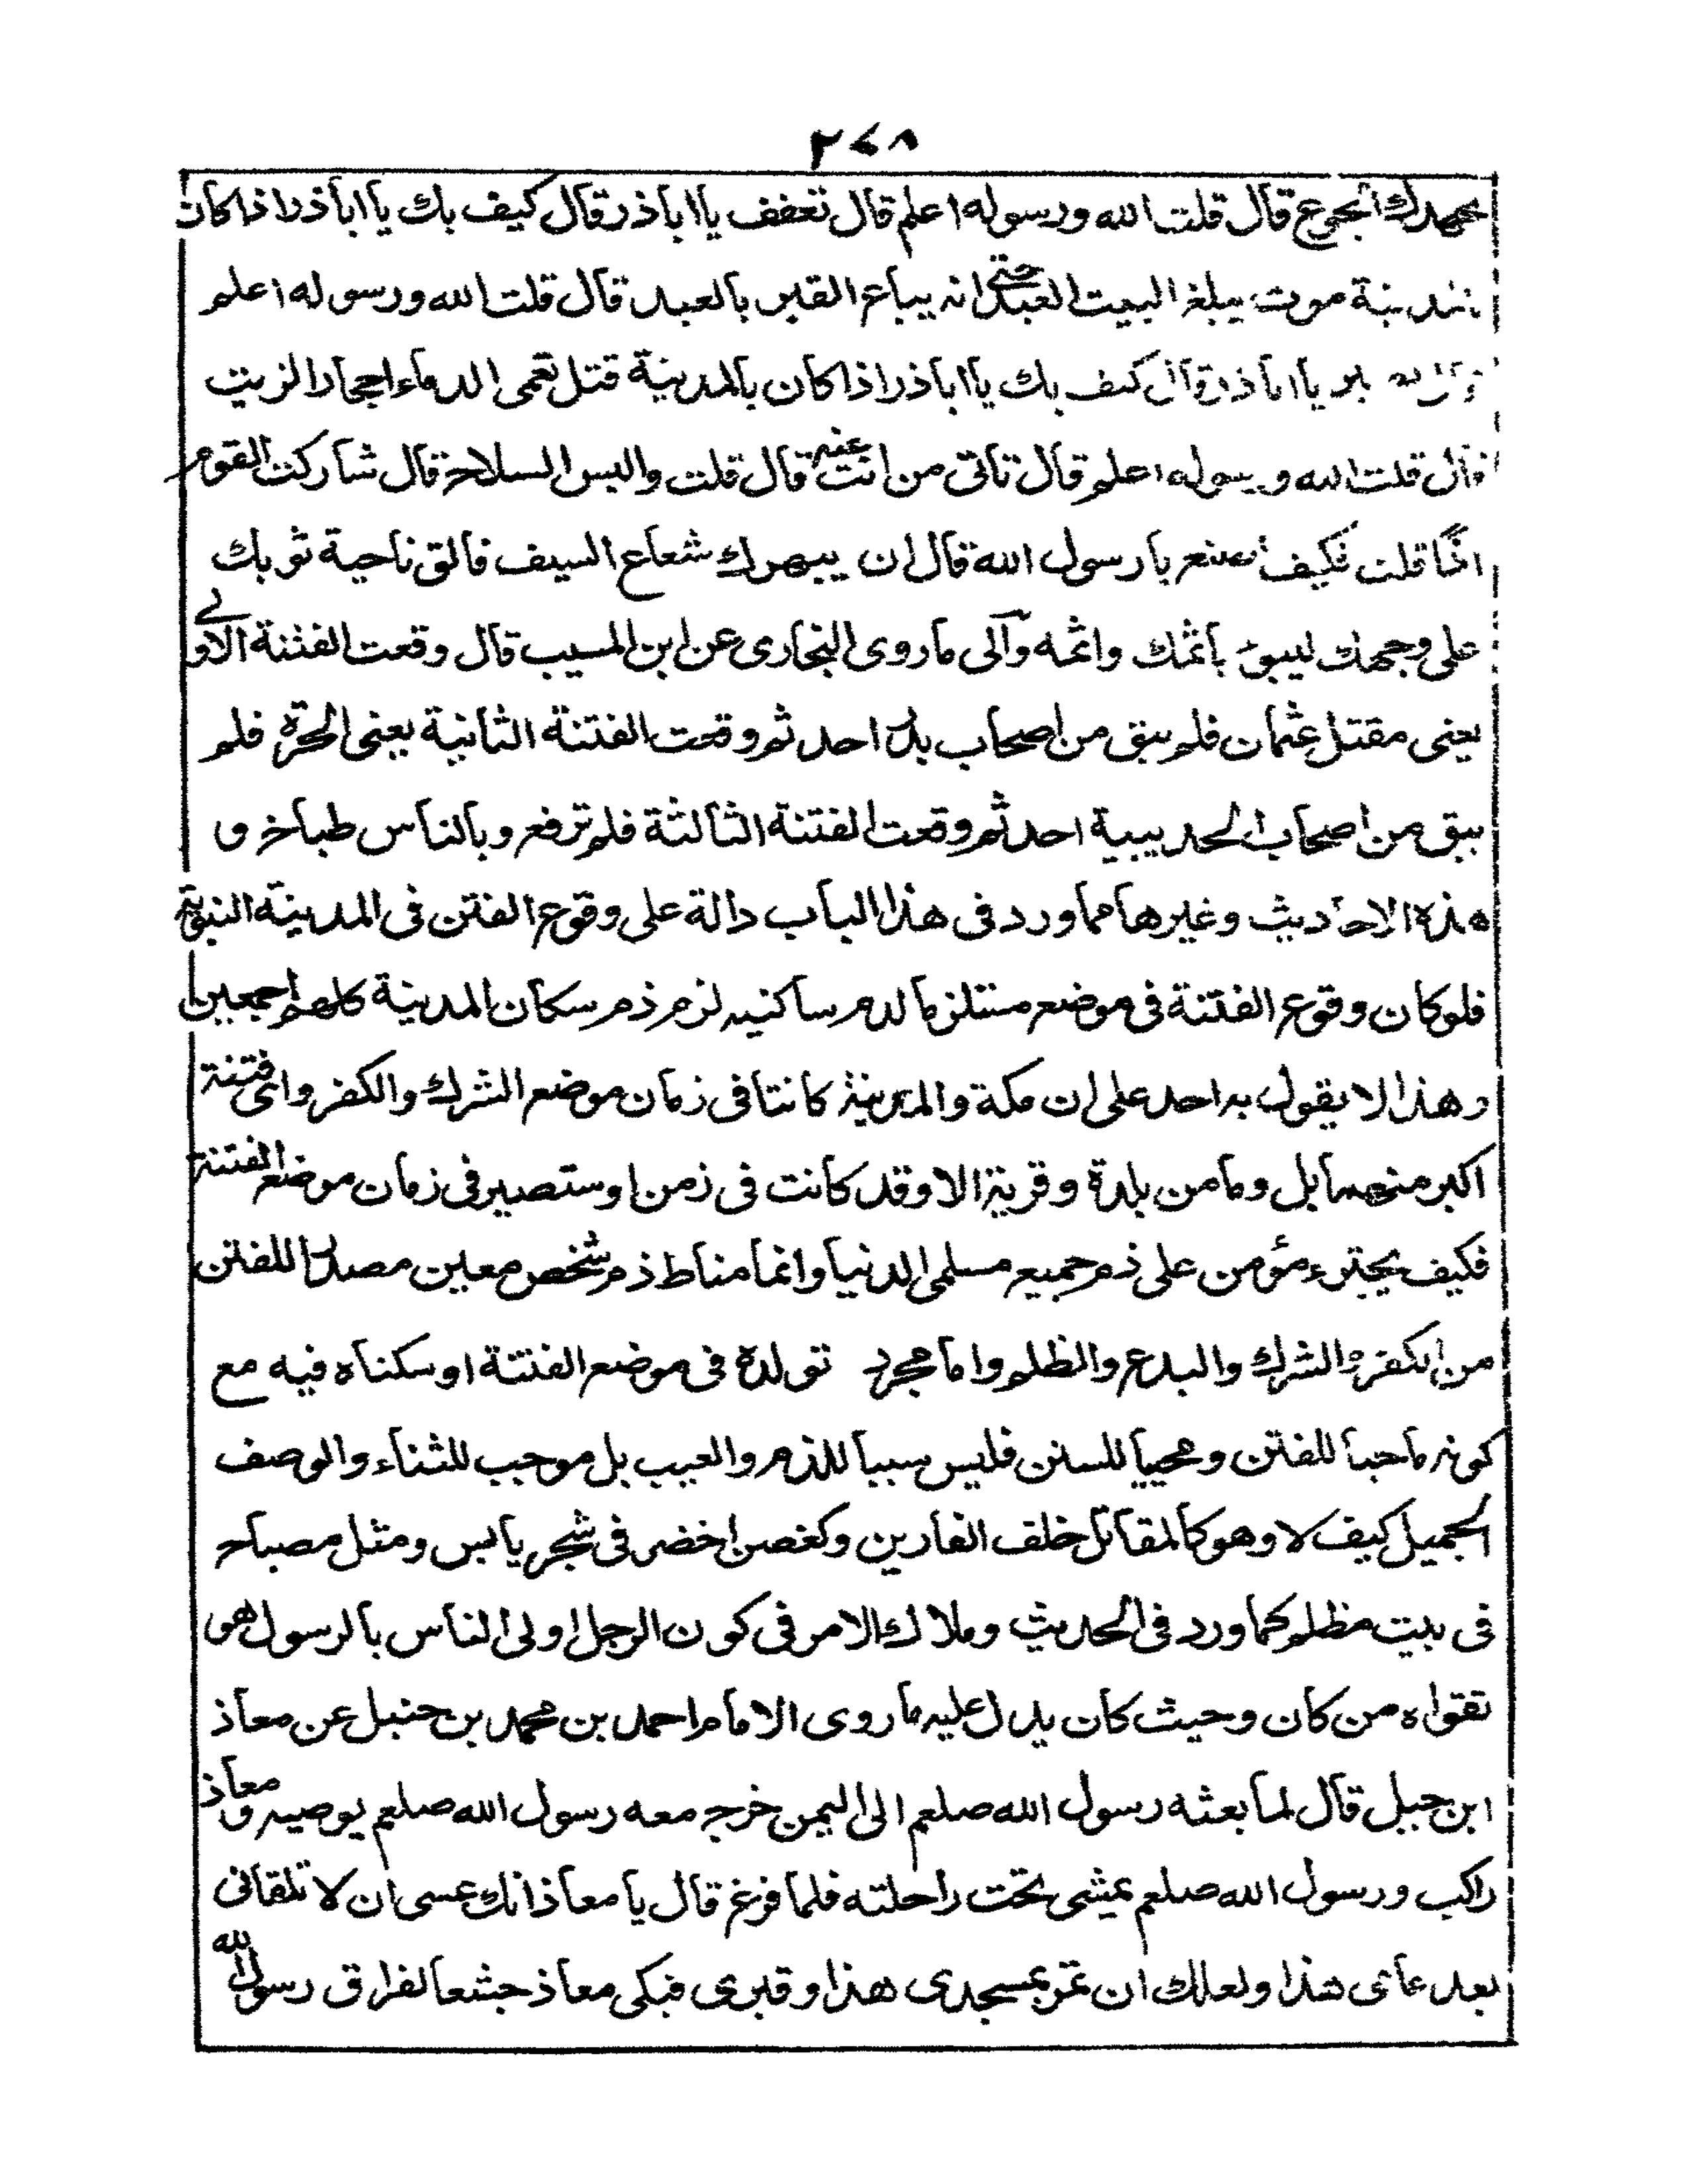 ٢٧٨
يجهدك الجوع قال قلت الله ورسوله اعلم قال تعفف يا ابا ذر قال كيف بك يا ابا ذر اذا كان
بالمدينة موت يبلغ البيت العبد حتى انه يباع القبر بالعبد قال قلت الله ورسوله اعلم
يا ابا ذر قال كيف بك يا ابا ذر اذا كان بالمدينة قتل تعمى الدماء احجار الزيت
قال قلت الله ورسوله اعلم قال تاتى من انت عنه قال قلت والبس السلاح قال شاركت القوم
اذًا قلت فكيف اصنع يا رسول الله قال ان يبهرك شعاع السيف فالق ناحية ثوبك
على وجهك ليبوء باثمك واثمه وآلى ما روى البخارى عن ابن المسيب قال وقعت الفتنة الاولى
يعنى مقتل عثمان فلم يبق من اصحاب بدر احد ثم وقعت الفتنة الثانية يعنى الحرة فلم
يبق من اصحاب الحديبية احد ثم وقعت الفتنة الثالثة فلم ترفع وبالناس طباخ و
هذه الاحاديث وغيرها مما ورد فى هذا الباب دالة على وقوع الفتن فى المدينة النبوية
فلو كان وقوع الفتنة فى موضع مستلزما لذم ساكنيه لزم ذم سكان المدينة كلهم اجمعين
وهذا لا يقول به احد على ان مكة والمدينة كانتا فى زمان موضع الشرك والكفر واى فتنة
اكبر منهما بل وما من بلدة وقرية الا وقد كانت فى زمن او ستصير فى زمان موضع الفتنة
فكيف يجترء مؤمن على ذم جميع مسلمى الدنيا وانما مناط ذم شخص معين مصدرا للفتن
من الكفر والشرك والبدع والظلم واما مجرد تولده فى موضع الفتنة او سكناه فيه مع
كونه ماحيا للفتن ومحييا للسنن فليس سببا للذم والعيب بل موجب للثناء والوصف
الجميل كيف لا وهو كالمقاتل خلف الفارين وكغصن اخضر فى شجر يابس ومثل مصباح
فى بيت مظلم كما ورد فى الحديث وملاك الامر فى كون الرجل اولى الناس بالرسول هو
تقواه من كان وحيث كان يدل عليه ما روى الامام احمد بن محمد بن حنبل عن معاذ
ابن جبل قال لما بعثه رسول الله صلعم الى اليمن خرج معه رسول الله صلعم يوصيه ومعاذ
راكب ورسول الله صلعم يمشى تحت راحلته فلما فرغ قال يا معاذ انك عسى ان لا تلقانى
بعد عامى هذا ولعلك ان تمر بمسجدى هذا وقبرى فبكى معاذ جشعا لفراق رسول الله